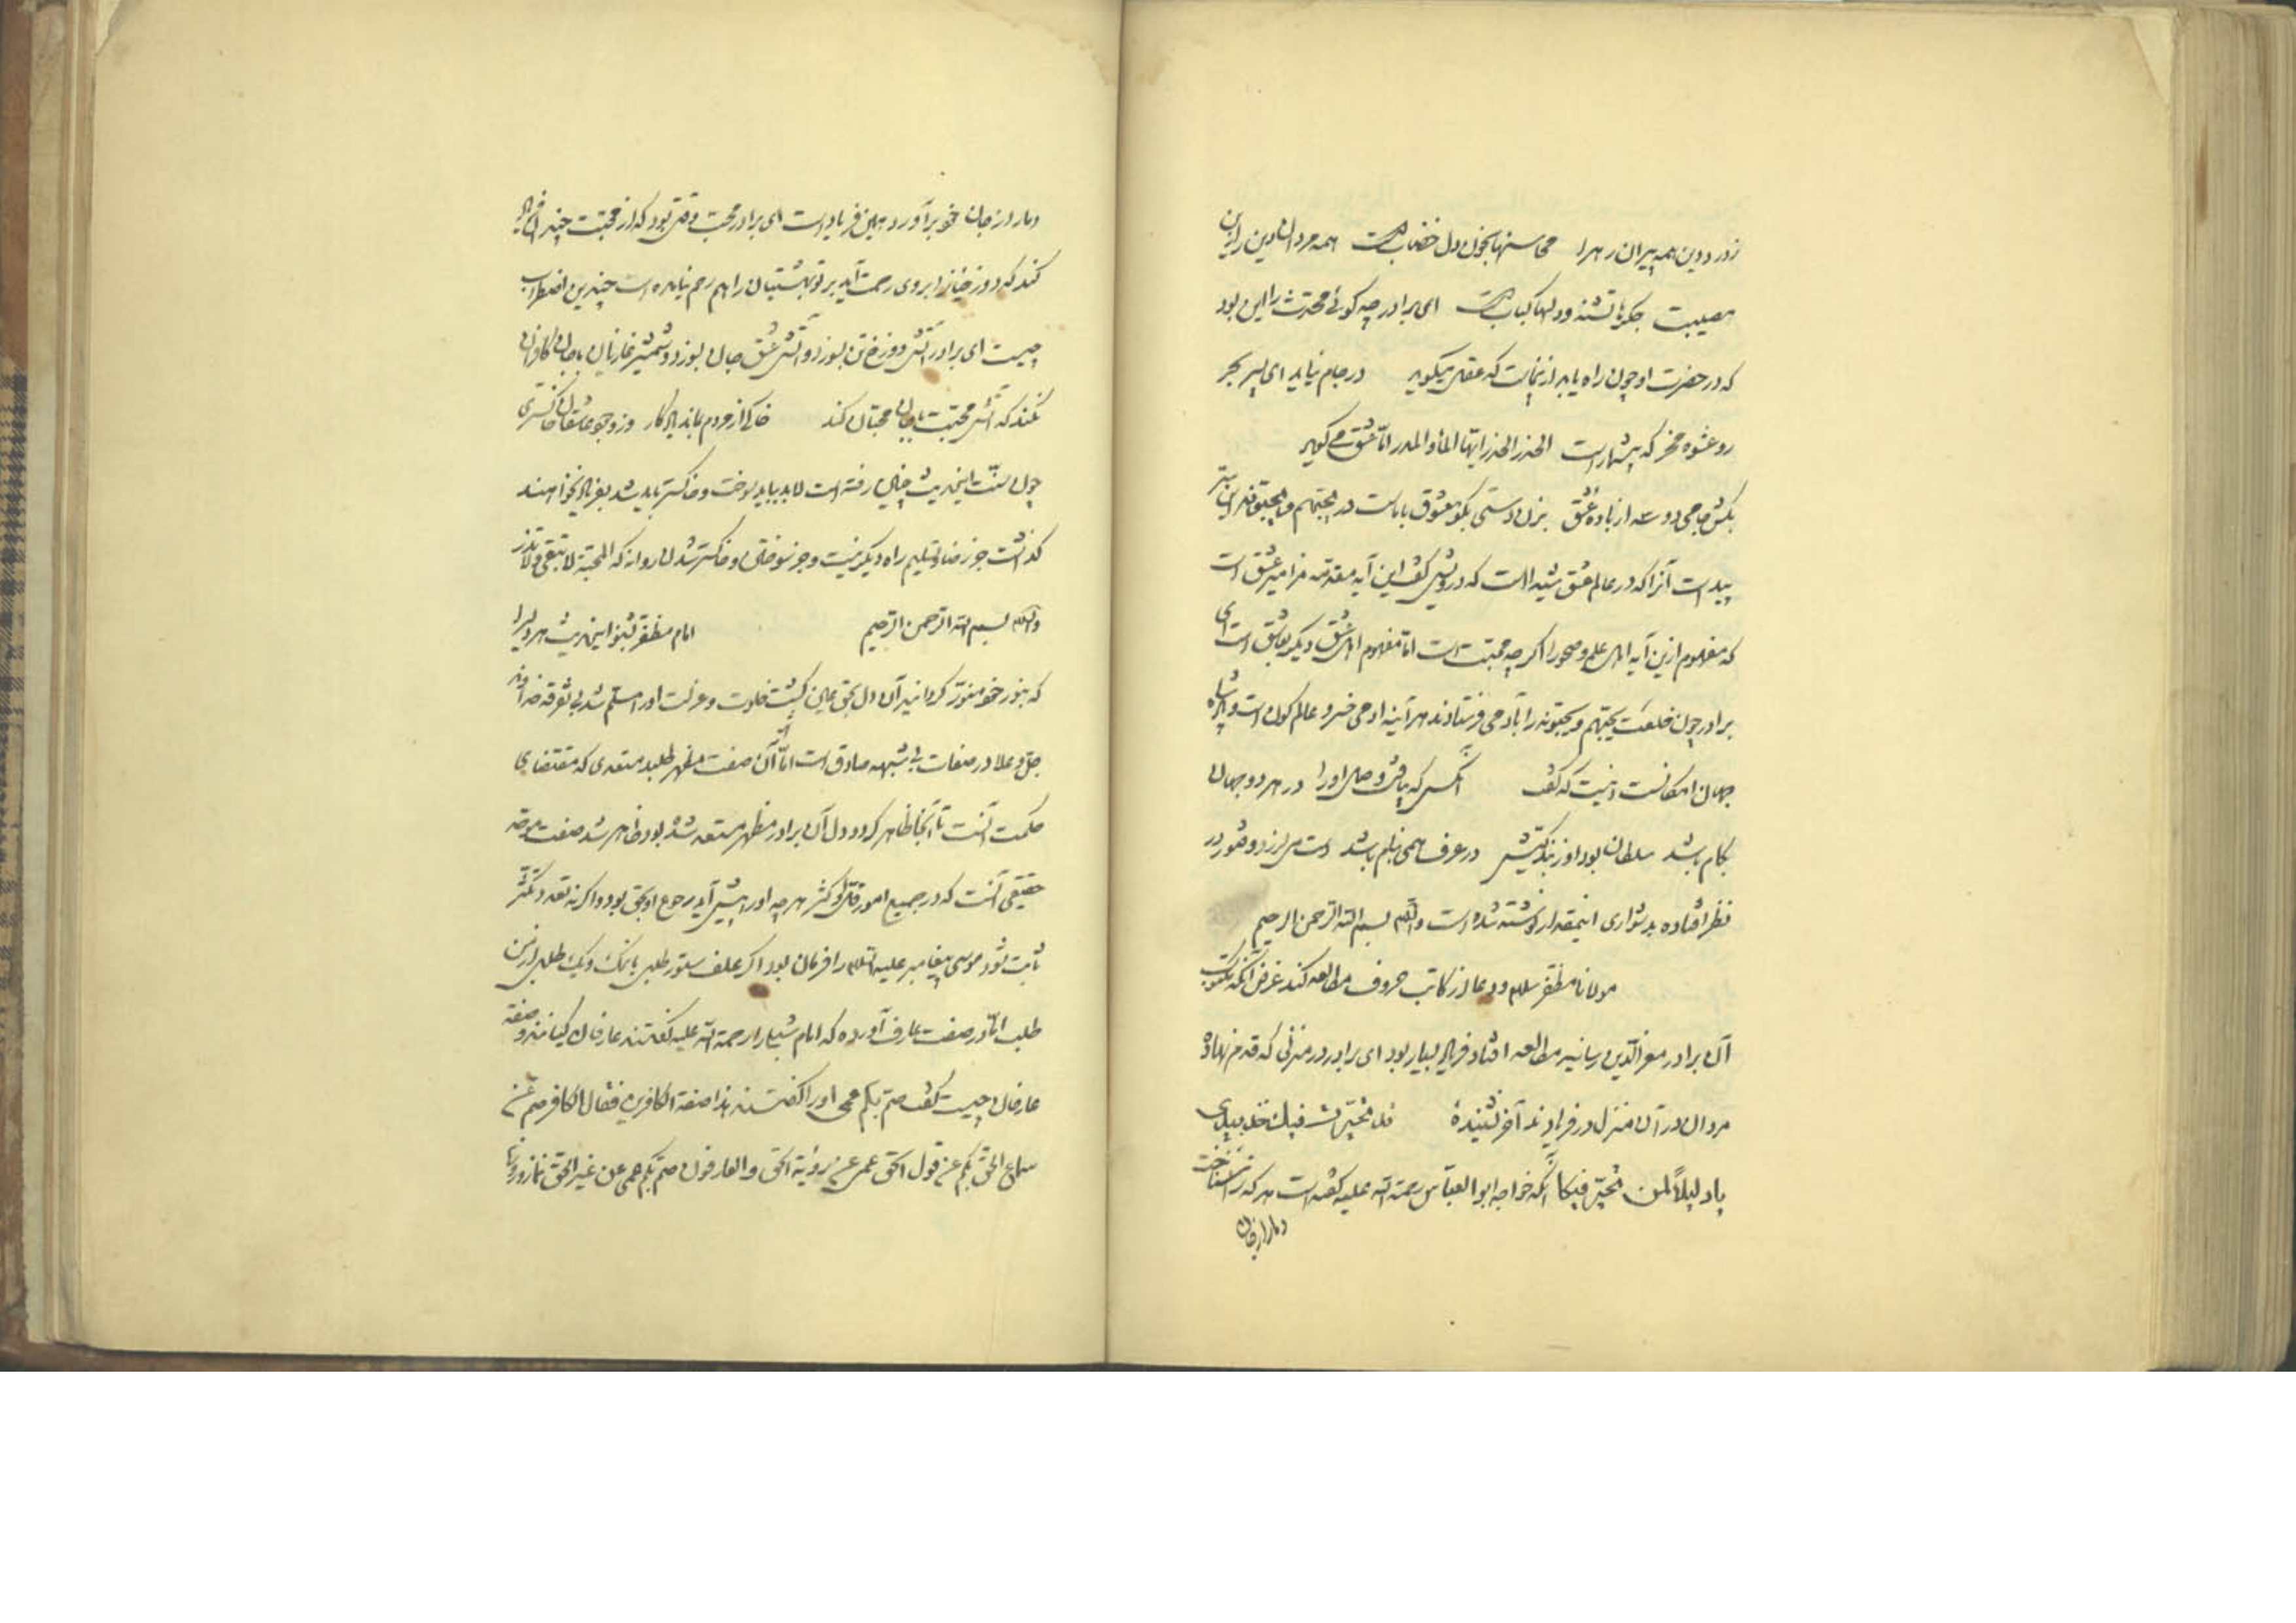 ز درد دین همه پیران ره را محاسنها بخون دل خضابست همه مردان دین را زین
مصیبت جگرها تشنه و دلها کبابست ای برادر چه گوئی محدث را این بود
که در حضرت او چون راه یابد ازینجاست که عقل میگوید در جام نیاید ای پسر بحر
رو عشوه مخر که بیشمارست الحذر الحذر ایها الماء والمدر اما عشق می گوید
بکش جامی دو سه از باده عشق بزن دستی بگو معشوق باماست در یحبهم و یحبونه این سر
پیداست آنرا که در عالم عشق است که درویش گفت این آیه مقدسه مزامیر عشق است
که مفهوم ازین آیه اهل علم و صحو را اگر چه محبت است اما مفهوم اهل عشق دیگر است ای
برادر چون خلعت یحبهم و یحبونه را بآدمی فرستادند هر آینه آدمی خسرو عالم کون است و پادشاه
جهان امکانست اینست که گفت آنکس که بیافت وصل او را در هر دو جهان
بکام باشد سلطان بود او ز نیکبختیش در عرف همی بنام باشد دست می لرزد و فتور در
نظر افتاده بدشواری اینمقدار نوشته شده است والسلام بسم الله الرحمن الرحیم
مولانا مظفر سلام و دعا از کاتب حروف مطالعه کند غرض آنکه مکتوب
آن برادر معزالدین رسانید مطالعه افتاد فریاد بسیار بود ای برادر در منزلی که قدم نهاده
مردان در آن منزل در فریادند آخر نشنیده قد تحیرت فیک خذ بیدی
یا دلیلا لمن تحیر فیکا آنکه خواجه ابوالعباس رحمة الله علیه گفته است هر که را شناخت
دمار از جان
دمار از جان خود برآورد همین فریاد است ای برادر محبت وقتی بود که از محبت چندان فریاد
کند که دوزخیانرا بروی رحمت آید بر تو بهشتیان را هم رحم نیامده است چندین اضطراب
چیست ای برادر آتش دوزخ تن بسوزد و آتش عشق جان بسوزد و شمشیر غازیان با جان کافران
نکند که آتش محبت با جان محبان کند خاکی از مردم بماند یادگار وز وجود عاشقان خاکستری
چون سنت این حدیث چنین رفته است لابد بباید سوخت و خاکستر باید شد بفریاد نخواهند
گذاشت جز رضا و تسلیم راه دیگر نیست و جز سوختن و خاکستر شدن روا نه که المحبة لا تبقی و لا تذر
والسلام بسم الله الرحمن الرحیم امام مظفر بشنو این حدیث هر دلی را
که بنور خود منور گردانید آن دل بحق عیان گشت خلوت و عزلت او را مسلم شد بی تفرقه خداوند
جل و علا در صفات بی شبهه صادق است اما آن صفت مظهر طلبد مستعدی که مقتضای
حکمت آنست تا آنجا ظاهر گردد دل آن برادر مظهر مستعد شده بود ظاهر شد صفت موحد
حقیقی آنست که در جمیع امور قل او کثر هر چه او را پیش آید رجوع او بحق بود و اگر نه تعدد و تکثر
ثابت شود موسی پیغامبر علیه السلام را فرمان بود اگر علف ستور طلبی یا نمک دیگ طلبی از من
طلب اما در صفت عارف آورده که امام شبلی را رحمة الله علیه گفتند عارفان کیانند و صفت
عارفان چیست گفت صم بکم عمی او را گفتند هذا صفة الکافرین فقال الکافر صم عن
سماع الحق بکم عن قول الحق عمی عن رؤیة الحق والعارفون صم بکم عمی عن غیر الحق نماز و روزه